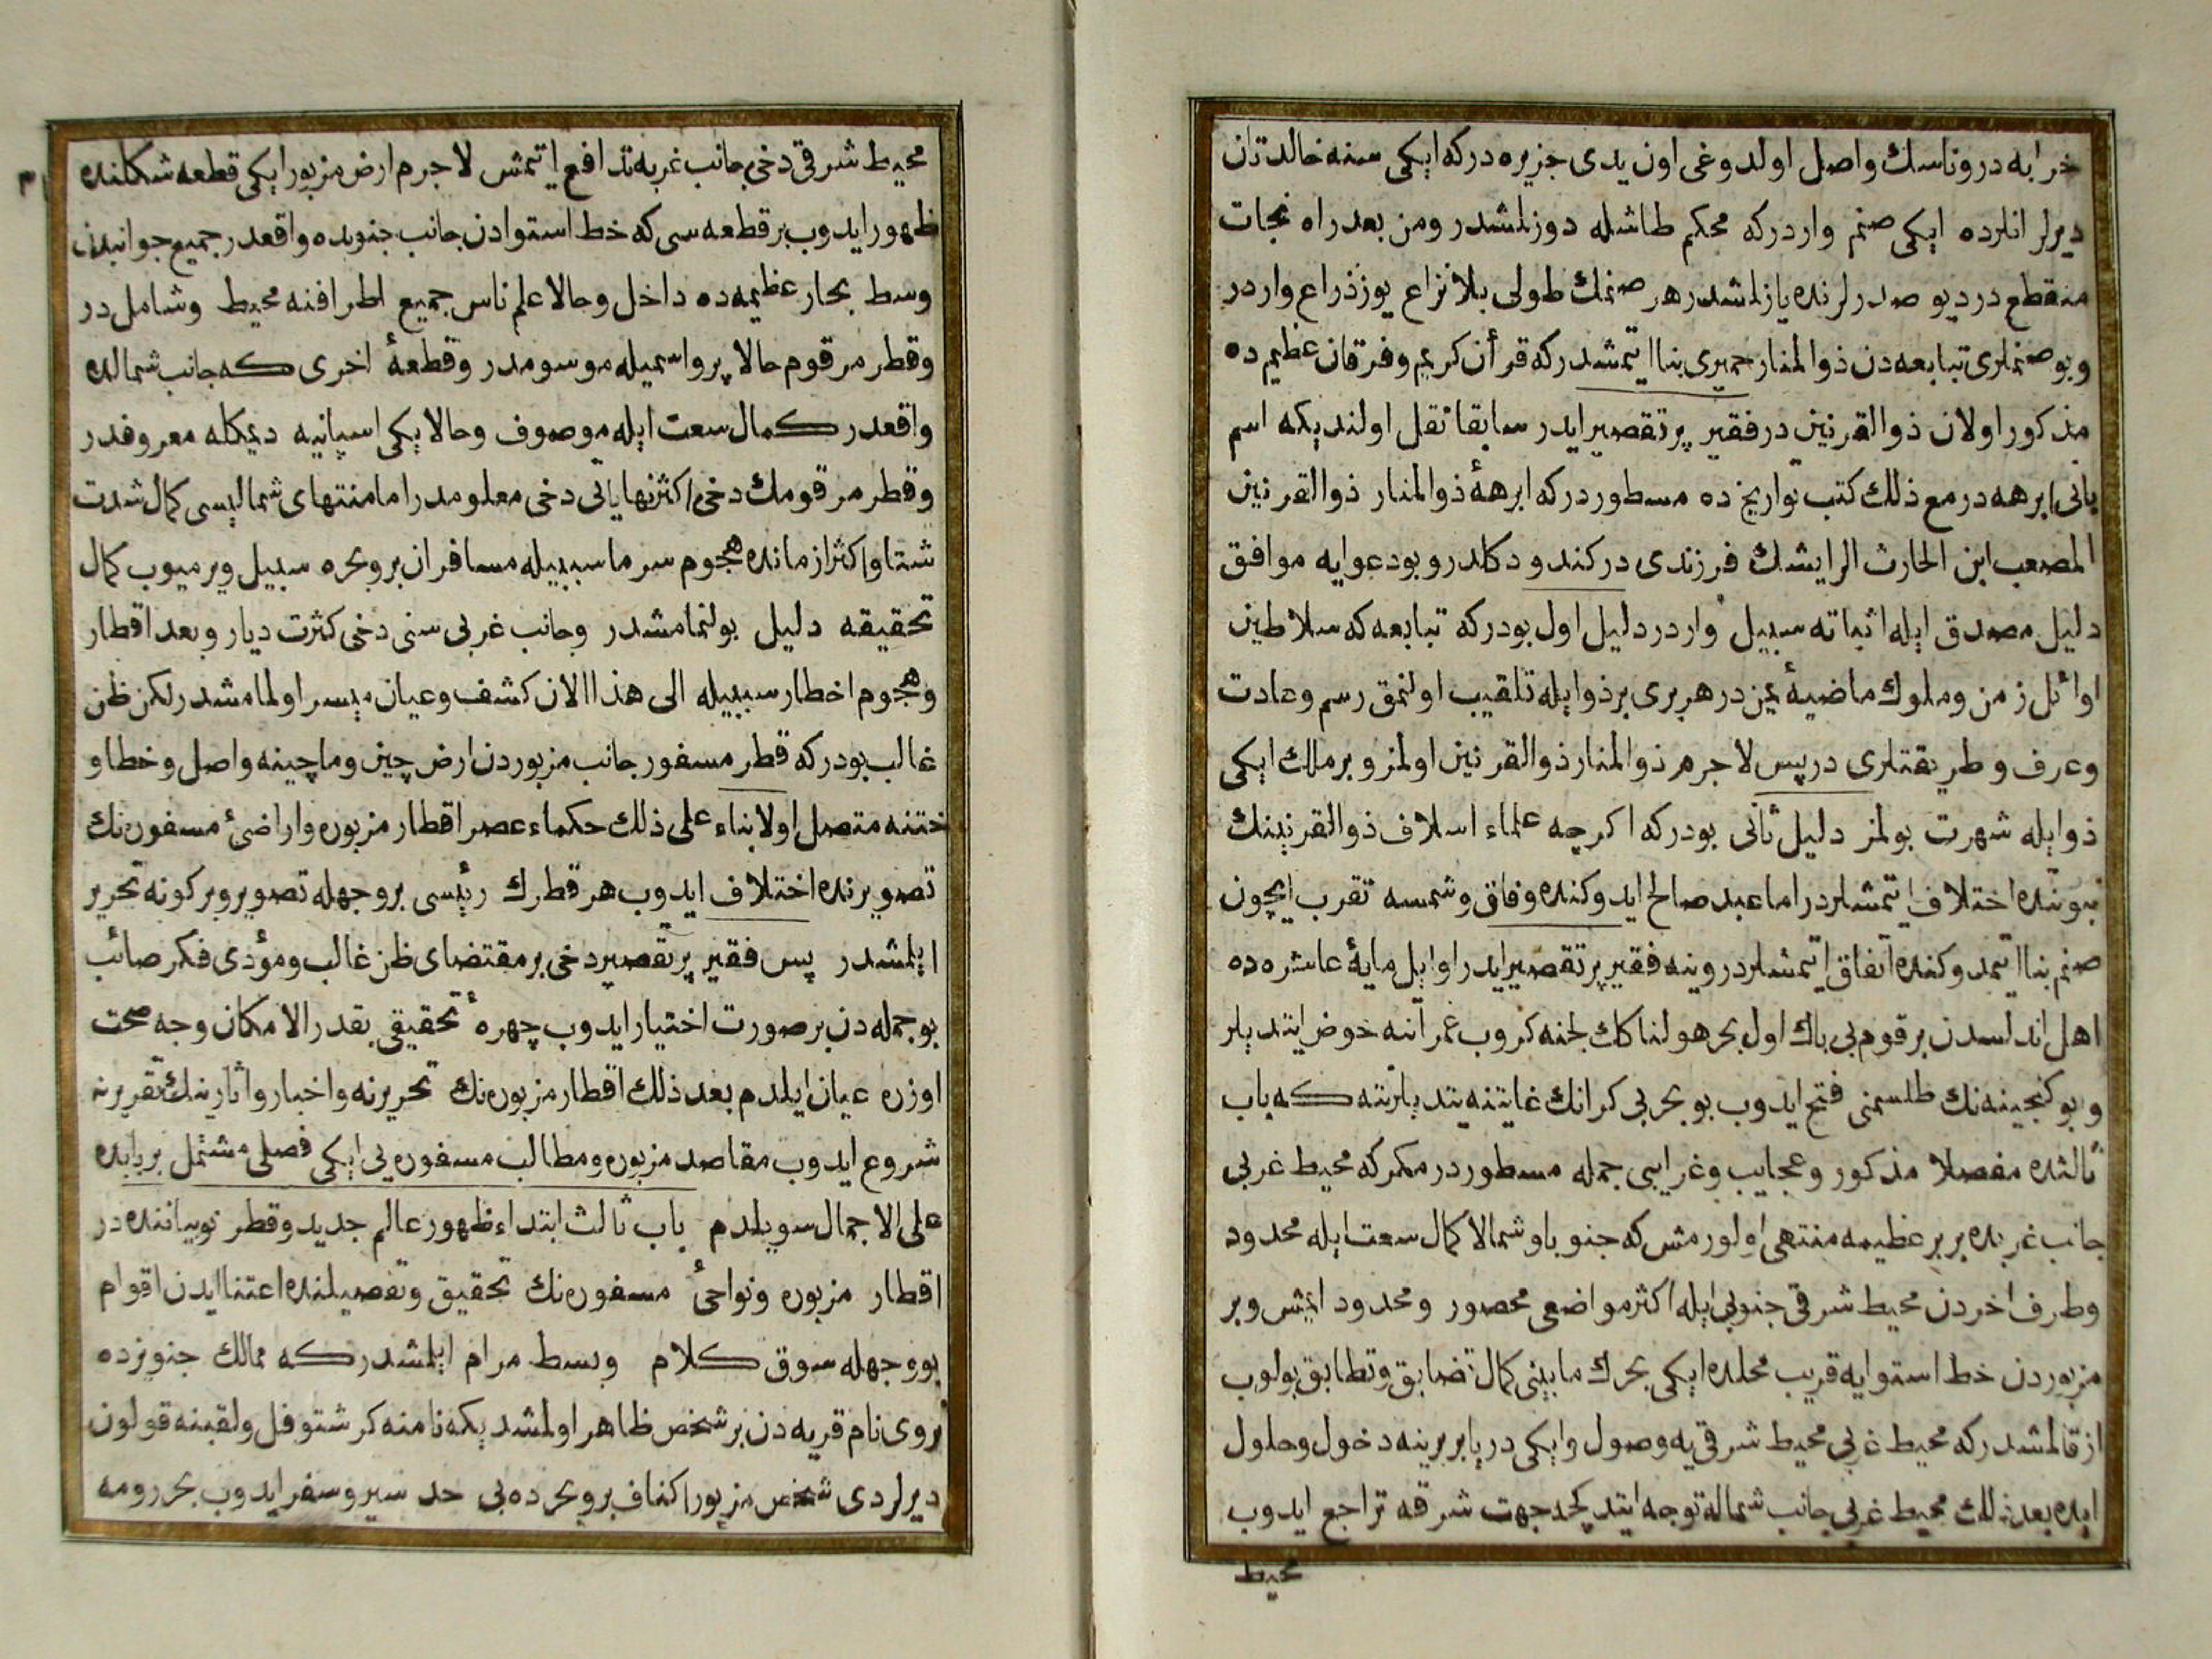 خرابه در وناسك واصل اولدوغی اون یدی جزیره در که ایکی سنه خالدتان
دیرلر انلرده ایکی صنم واردر که محکم طاشله دوزلمشدر ومن بعد راه نجات
منقطع در دیو صدرلرنده یازلمشدر هر صنمك طولی بلا نزاع یوز ذراع واردر
وبو صنملری تبابعه دن ذو المنار حمیری بنا ایتمشدر که قرأن کریم وفرقان عظیم ده
مذکور اولان ذو القرنین در فقیر پر تقصیر ایدر سابقا نقل اولندیکه اسم
بانی ابرهه در مع ذلك کتب تواریخ ده مسطور در که ابرههٔ ذو المنار ذو القرنین
المصعب ابن الحارث الرایشك فرزندی در کندود کلدر و بو دعوایه موافق
دلیل مصدق ایله اثباته سبیل واردر دلیل اول بودر که تبابعه که سلاطین
اوائل زمن وملوك ماضیهٔ یمن در هر بری بر ذو ایله تلقیب اولنمق رسم وعادت
وعرف وطریقتلری در پس لا جرم ذو المنار ذو القرنین اولمز و بر ملك ایکی
ذو ایله شهرت بولمز دلیل ثانی بودر که اکرچه علماء اسلاف ذو القرنینك
نبوتنده اختلاف ایتمشلردر اما عبد صالح ایدوکنده وفاق وشمسه تقرب ایچون
صنم بنا ایتمدوکنده اتفاق ایتمشلردر وینه فقیر پر تقصیر ایدر اوایل مایهٔ عاشره ده
اهل اندلسدن بر قوم بی باك اول بحر هولناکك لجنه کروب غمراتنه خوض ایتدیلر
وبو کنجینه نك طلسمنی فتح ایدوب بو بحر بی کرانك غایتنه یتدیلر نته که باب
ثالثده مفصلا مذکور وعجایب وغرایبی جمله مسطور در مکر که محیط غربی
جانب غربده بر بر عظیمه منتهی اولورمش که جنوبا وشمالا کمال سعت ایله محدود
وطرف اخردن محیط شرقی جنوبی ایله اکثر مواضعی محصور ومحدود ایمش وبر
مزبوردن خط استوایه قریب محلده ایکی بحرك مابینی کمال تضایق وتطابق بولوب
از قالمشدر که محیط غربی محیط شرقی یه وصول وایکی دریا بربرینه دخول وحلول
ایده بعد ذلك محیط غربی جانب شماله توجه ایتدیکجه جهت شرقه تراجع ایدوب
محیط
محیط شرقی دخی جانب غربه تدافع ایتمش لا جرم ارض مزبور ایکی قطعه شکلنده
ظهور ایدوب بر قطعه سی که خط استوادن جانب جنوبده واقعدر جمیع جوانبدن
وسط بحار عظیمه ده داخل وحالا علم ناس جمیع اطرافنه محیط وشاملدر
وقطر مرقوم حالا پرو اسمیله موسومدر وقطعهٔ اخری که جانب شمالده
واقعدر کمال سعت ایله موصوف وحالا یکی اسپانیه دیمکله معروفدر
وقطر مرقومك دخی اکثر نهایاتی دخی معلومدر اما منتهای شمالیسی کمال شدت
شتا واکثر ازمانده هجوم سرما سببیله مسافران بر وبحره سبیل ویرمیوب کمال
تحقیقه دلیل بولنمامشدر وجانب غربی سنی دخی کثرت دیار وبعد اقطار
وهجوم اخطار سببیله الی هذا الان کشف وعیان میسر اولمامشدر لکن ظن
غالب بودر که قطر مسفور جانب مزبوردن ارض چین وماچینه واصل وخطا و
ختنه متصل اولا بناء علی ذلك حکماء عصر اقطار مزبوره واراضیٔ مسفوره نك
تصویرنده اختلاف ایدوب هر قطرك رئیسی بر وجهله تصویر وبر کونه تحریر
ایلمشدر پس فقیر پر تقصیر دخی بر مقتضای ظن غالب ومؤدی فکر صائب
بو جمله دن بر صورت اختیار ایدوب چهرهٔ تحقیقی بقدر الامکان وجه صحت
اوزره عیان ایلدم بعد ذلك اقطار مزبوره نك تحریرنه واخبار واثارینك تقریرنه
شروع ایدوب مقاصد مزبوره ومطالب مسفوره یی ایکی فصلی مشتمل بر بابده
علی الاجمال سویلدم باب ثالث ابتداء ظهور عالم جدید وقطر نو بیاننده در
اقطار مزبوره ونواحیٔ مسفوره نك تحقیق وتفصیلنده اعتنا ایدن اقوام
بو وجهله سوق کلام وبسط مرام ایلمشدر که ممالك جنویزده
نروی نام قریه دن بر شخص ظاهر اولمشدیکه نامنه کرشتوفل ولقبنه قولون
دیرلردی شخص مزبور اکناف بر وبحرده بی حد سیر وسفر ایدوب بحر رومه